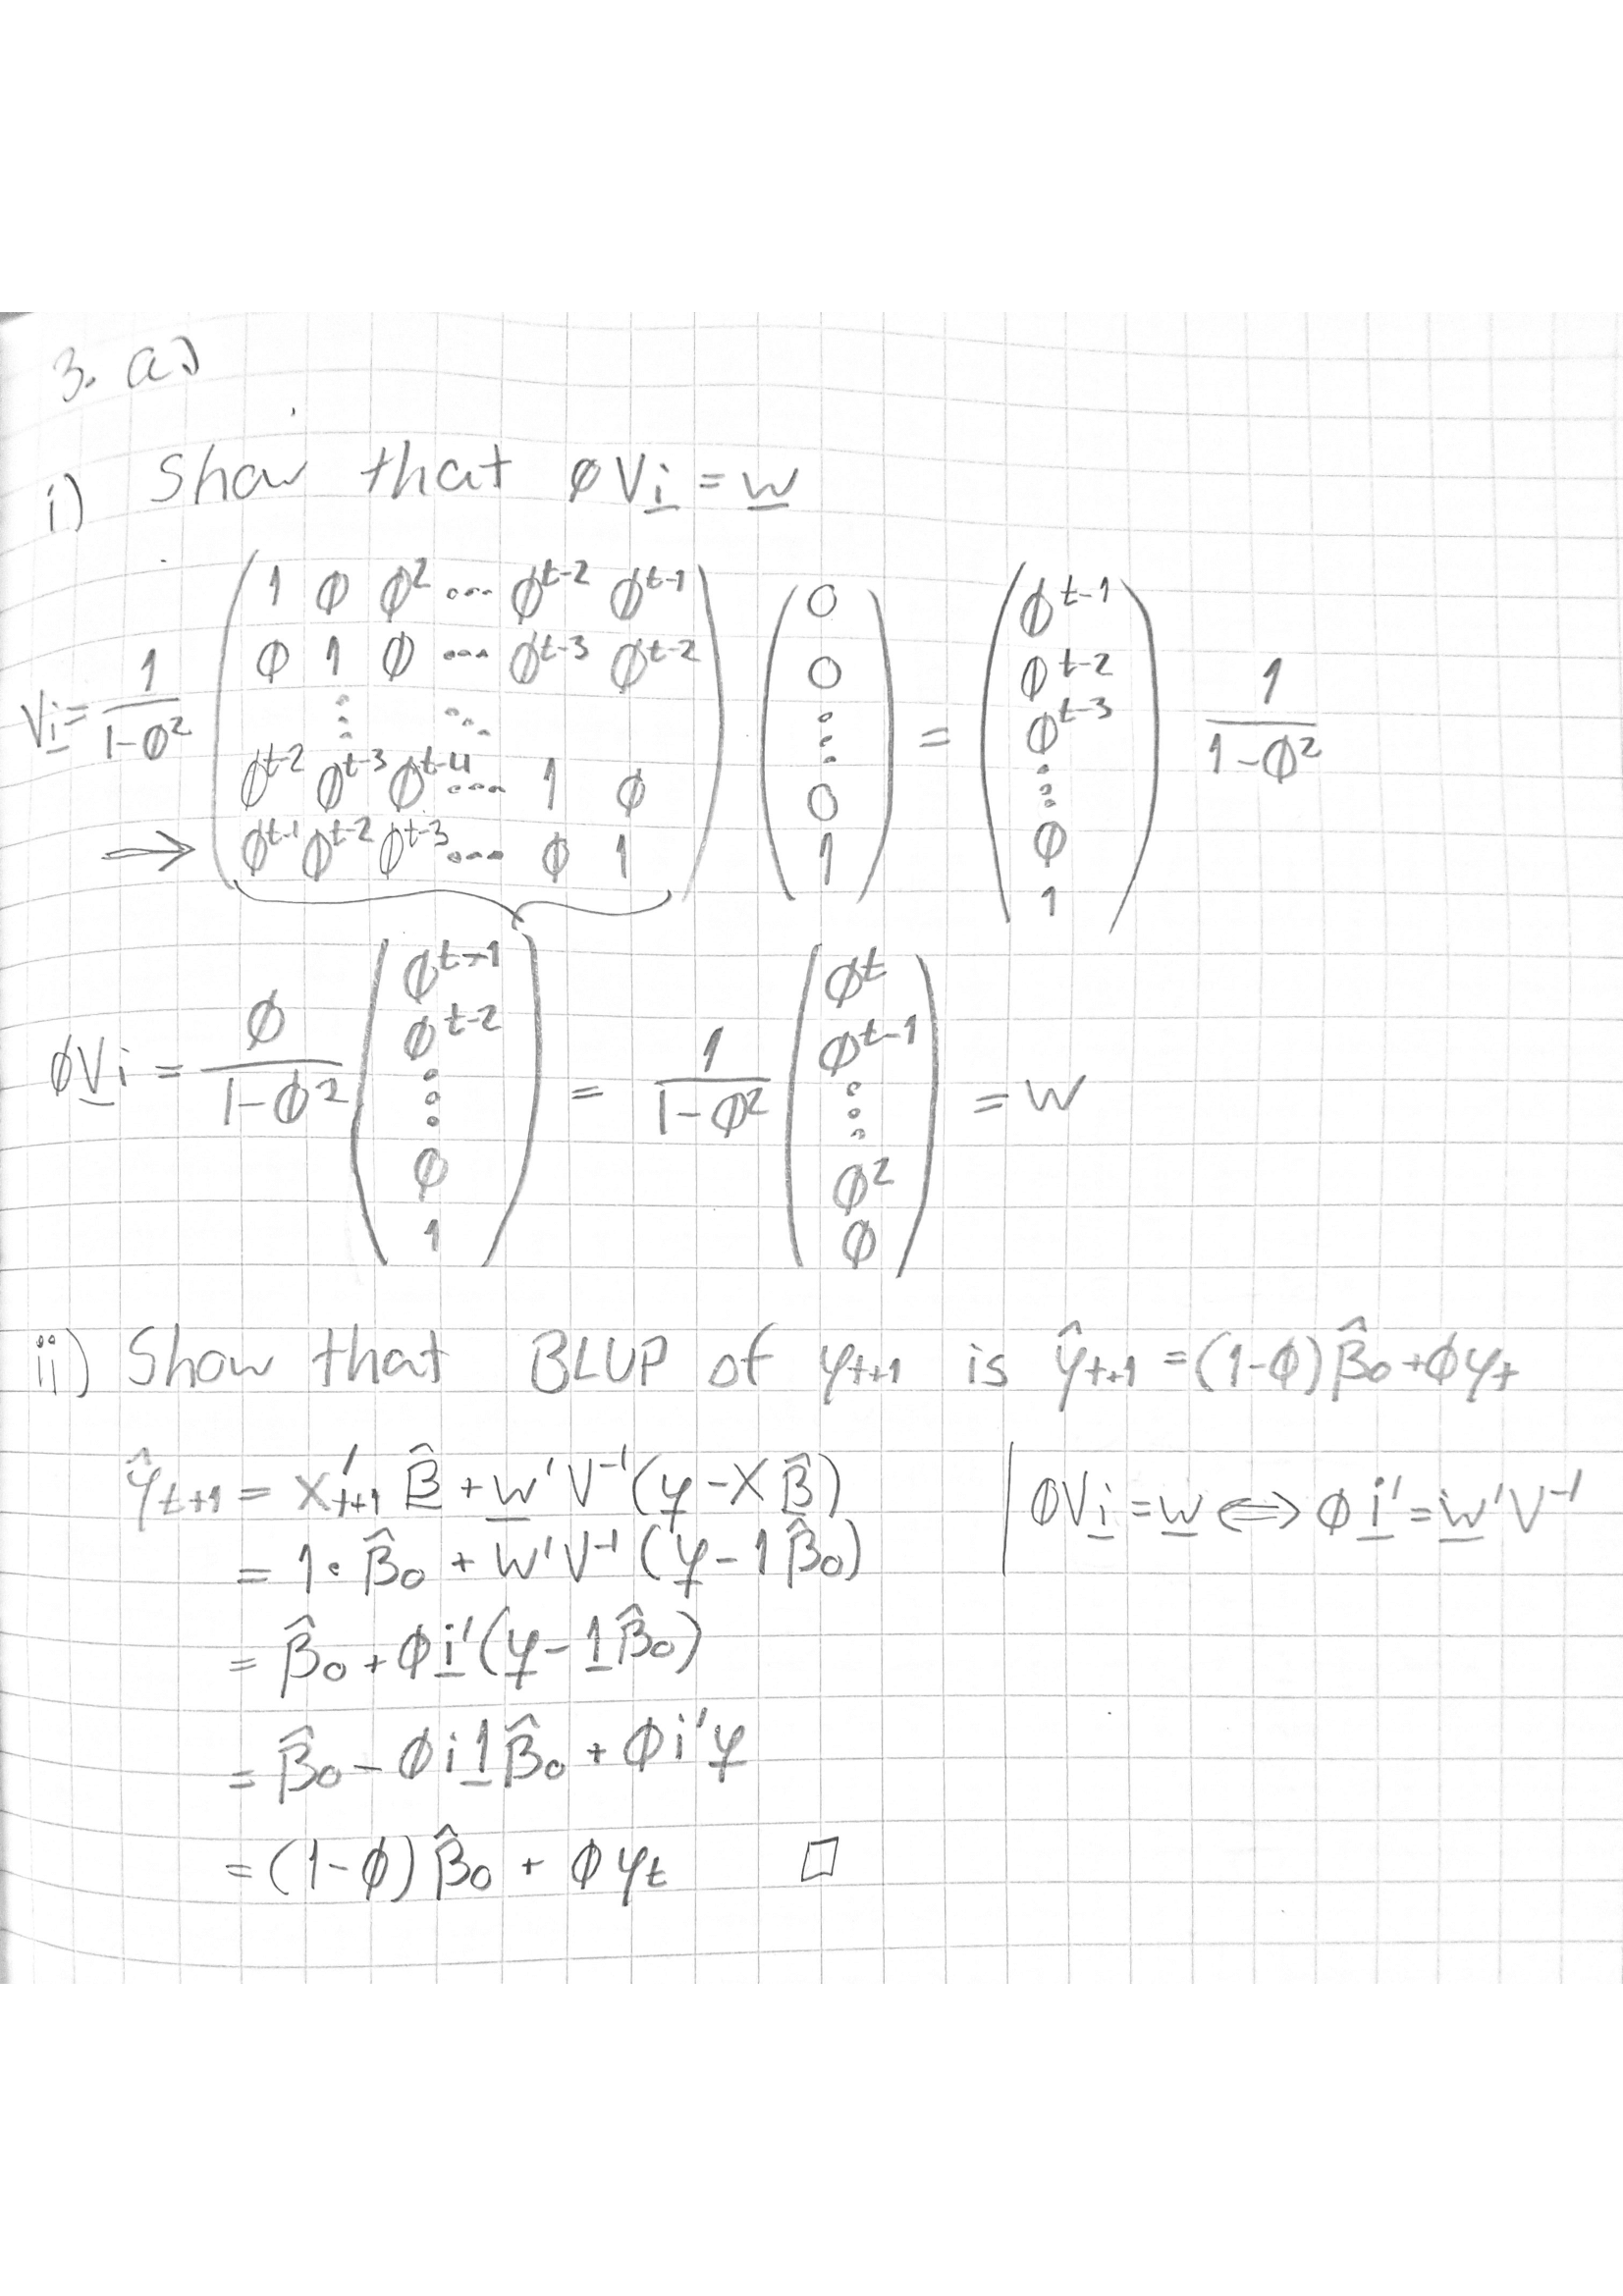 3. a)
i) Show that ϕVi̲ = w̲
Vi̲ = 1/(1-ϕ²) ( 1 ϕ ϕ² ... ϕ^{t-2} ϕ^{t-1} ; ϕ 1 ϕ ... ϕ^{t-3} ϕ^{t-2} ; ⋮ ⋱ ; ϕ^{t-2} ϕ^{t-3} ϕ^{t-4} ... 1 ϕ ; ϕ^{t-1} ϕ^{t-2} ϕ^{t-3} ... ϕ 1 ) ( 0 ; 0 ; ⋮ ; 0 ; 1 ) = ( ϕ^{t-1} ; ϕ^{t-2} ; ϕ^{t-3} ; ⋮ ; ϕ ; 1 ) 1/(1-ϕ²)
→
ϕV̲i = ϕ/(1-ϕ²) ( ϕ^{t-1} ; ϕ^{t-2} ; ⋮ ; ϕ ; 1 ) = 1/(1-ϕ²) ( ϕ^t ; ϕ^{t-1} ; ⋮ ; ϕ² ; ϕ ) = w
ii) Show that BLUP of y_{t+1} is ŷ_{t+1} = (1-ϕ)β̂₀ + ϕy_t
ŷ_{t+1} = x'_{t+1} β̲̂ + w̲'V⁻¹(y̲ - Xβ̲̂) | ϕVi̲ = w̲ ⟺ ϕi̲' = w̲'V⁻¹
= 1·β̂₀ + w'V⁻¹(y̲ - 1β̂₀)
= β̂₀ + ϕi̲'(y̲ - 1̲β̂₀)
= β̂₀ - ϕi1̲β̂₀ + ϕi'y̲
= (1-ϕ)β̂₀ + ϕy_t □